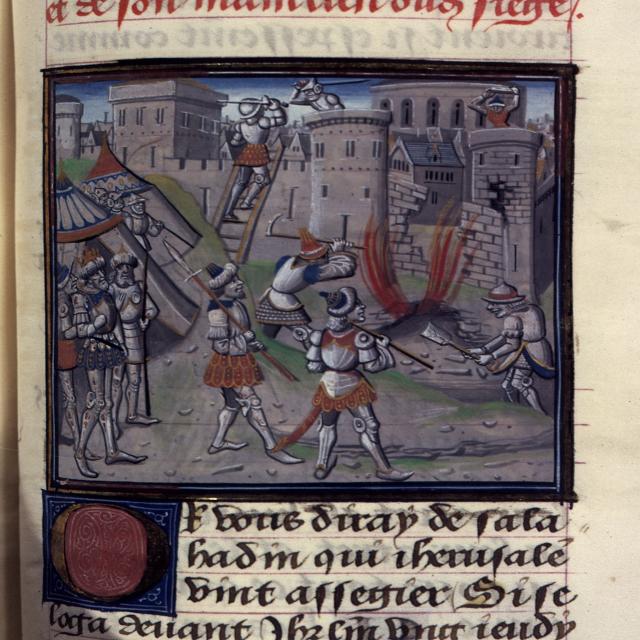 et de son mantien ouq siege.
Or vous diray de sala
hadin qui iherusale
vint assegier Si se
loga deuant Jhrlm vng ieudy